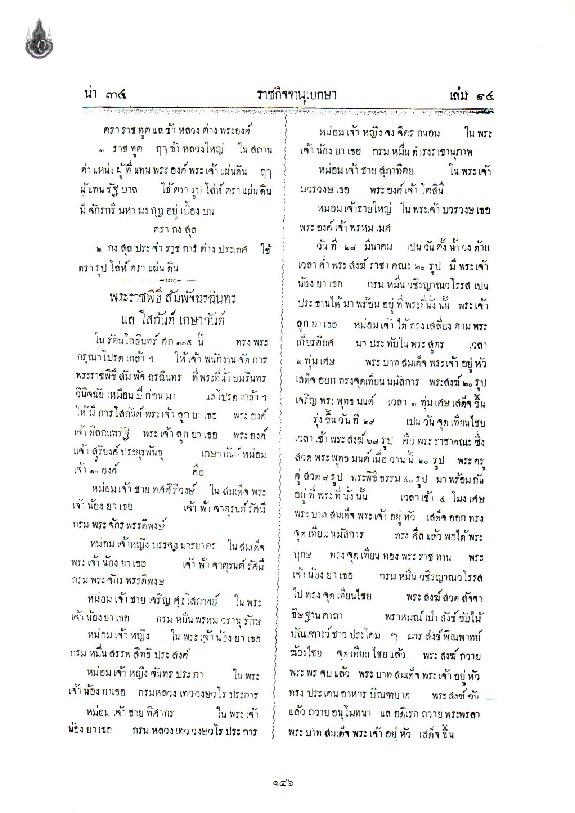 น่า ๓๔
ราชกิจจานุเบกษา
เล่ม ๑๔
ตรา ราช ทูต แล ข้า หลวง ต่าง พระองค์
๑ ราช ทูต ฤๅ ข้า หลวงใหญ่ ใน สถาน
ตำ แหน่ง ผู้ ที่ แทน พระ องค์ พระ เจ้า แผ่นดิน ฤๅ
ผู้แทน รัฐ บาล ใช้ ตรา รูป โล่ห์ ตรา แผ่น ดิน
มี จักรกรี มหา มงกุฎ อยู่ เบื้อง บน
ตรา กง สุล
๒ กง สุล ประ จำ ราช การ ต่าง ประเทศ ใช้
ตรา รูป โล่ห์ ตรา แผ่น ดิน
พระราชพิธี สัมพัจฉรฉินทร
แล โสกันต์ เกษากันต์
ใน รัตนโกสินทร์ ศก ๑๑๕ นี้ ทรง พระ
กรุณาโปรด เกล้า ฯ ให้ เจ้า พนักงาน จัด การ
พระราชพิธี สัมพัจ ฉรฉินทร ที่ พระที่นั่ง อมรินทร
วินิจฉัย เหมือน ปี ก่อน มา แลโปรด เกล้า ฯ
ให้ มี การ โสกันต์ พระ เจ้า ลูก ยา เธอ พระ องค์
เจ้า ดิลกนพรัฐ พระ เจ้า ลูก ยา เธอ พระ องค์
เจ้า สุริยงค์ ประยุรพันธุ์ เกษา กันต์ หม่อม
เจ้า ๑๐ องค์ คือ
หม่อม เจ้า ชาย ทศศิริวงษ์ ใน สมเด็จ พระ
เจ้า น้อง ยา เธอ เจ้า ฟ้า จาตุรนต์ รัศมี
กรม พระ จักร พรรดิพงษ์
หม่อม เจ้าหญิง บรรจง มารยาตร ใน สมเด็จ
พระ เจ้า น้อง ยา เธอ เจ้า ฟ้า จาตุรนต์ รัศมี
กรม พระ จักร พรรดิพงษ
หม่อม เจ้า ชาย เจริญ ใน พระ
เจ้า น้อง ยา เธอ กรม หมื่น พรหม วรานุ รักษ
หม่อม เจ้า หญิง ใน พระ เจ้า น้อง ยา เธอ
กรม หมื่น สรรพ สิทธิ ประ สงค์
หม่อม เจ้า หญิง จันทร ประภา ใน พระ
เจ้า น้อง ยาเธอ กรมหลวง เทวะวงษวโร ประการ
หม่อม เจ้า ชาย ทิศากร ใน พระ เจ้า
น้อง ยา เธอ กรม หลวง เทวะ วงษวโร ประ การ
หม่อม เจ้า หญิง จง จิตร ถนอม ใน พระ
เจ้า น้อง ยา เธอ กรม หมื่น ดำรงราชานุภาพ
หม่อม เจ้า ชาย ใน พระ เจ้า
บวรวงษ เธอ พระองค์ เจ้า
หม่อม เจ้าชายใหญ่ ใน พระเจ้า บวรวงษ เธอ
พระ องค์ เจ้า พรหม เมศ
วัน ที่ ๒๘ มีนาคม เปน วัน ตั้ง น้ำ วง ด้าย
เวลา ค่ำ พระ สงฆ์ ราชา คณะ ๒๐ รูป มี พระ เจ้า
น้อง ยา เธอ กรม หมื่น วชิรญาณวโรรส เปน
ประ ธานได้ มา พร้อม อยู่ ที่ พระที่ นั่ง นั้น พระ เจ้า
ลูก ยา เธอ หม่อม เจ้า ได้ ทรง เสลี่ยง ตาม พระ
เกียรติยศ มา ประ ทับใน พระ สูตร เวลา
๑ ทุ่ม เศษ พระ บาท สมเด็จ พระเจ้า อยู่ หัว
เสด็จ ออก ทรงจุดเทียน นมัสการ พระสงฆ์ ๒๐ รูป
เจริญ พระ พุทธ มนต์ เวลา ๓ ทุ่ม เศษ เสด็จ ขึ้น
รุ่ง ขึ้น วัน ที่ ๒๙ เปน วัน จุด เทียนไชย
เวลา เช้า พระ สงฆ์ ๖๗ รูป คือ พระ ราชาคณะ ซึ่ง
สวด พระ พุทธ มนต์ เมื่อ วาน นี้ ๒๐ รูป พระ ครู
คู่ สวด ๗ รูป พระพิธี ธรรม ๔๐ รูป มา พร้อม กัน
อยู่ ที่ พระ ที่ นั่ง นั้น เวลา เช้า ๔ โมง เศษ
พระ บาท สมเด็จ พระ เจ้า อยู่ หัว เสด็จ ออก ทรง
จุด เทียน นมัสการ ทรง ศีล แล้ว พอได้ พระ
ฤกษ ทรง จุด เทียน ทอง พระ ราช ทาน พระ
เจ้า น้อง ยา เธอ กรม หมื่น วชิรญาณวโรรส
ไป ทรง จุด เทียนไชย พระ สงฆ์ สวด สัจจา
ธิษฐาน คาถา พราหมณ์ เป่า สังข์ ขับไม้
บัณเฑาะว์ ชาว ประโคม ๆ แตร สังข์ พิณพาทย์
ฆ้องไชย จุด เทียน ไชย แล้ว พระ สงฆ์ ถวาย
พระ พร จบ แล้ว พระ บาท สมเด็จ พระ เจ้า อยู่ หัว
ทรง ประเคน อาหาร บิณฑบาต พระ สงฆ์ ฉัน
แล้ว ถวาย อนุโมทนา แล อดิเรก ถวาย พระพรลา
พระ บาท สมเด็จ พระ เจ้า อยู่ หัว เสด็จ ขึ้น
๑๔๖